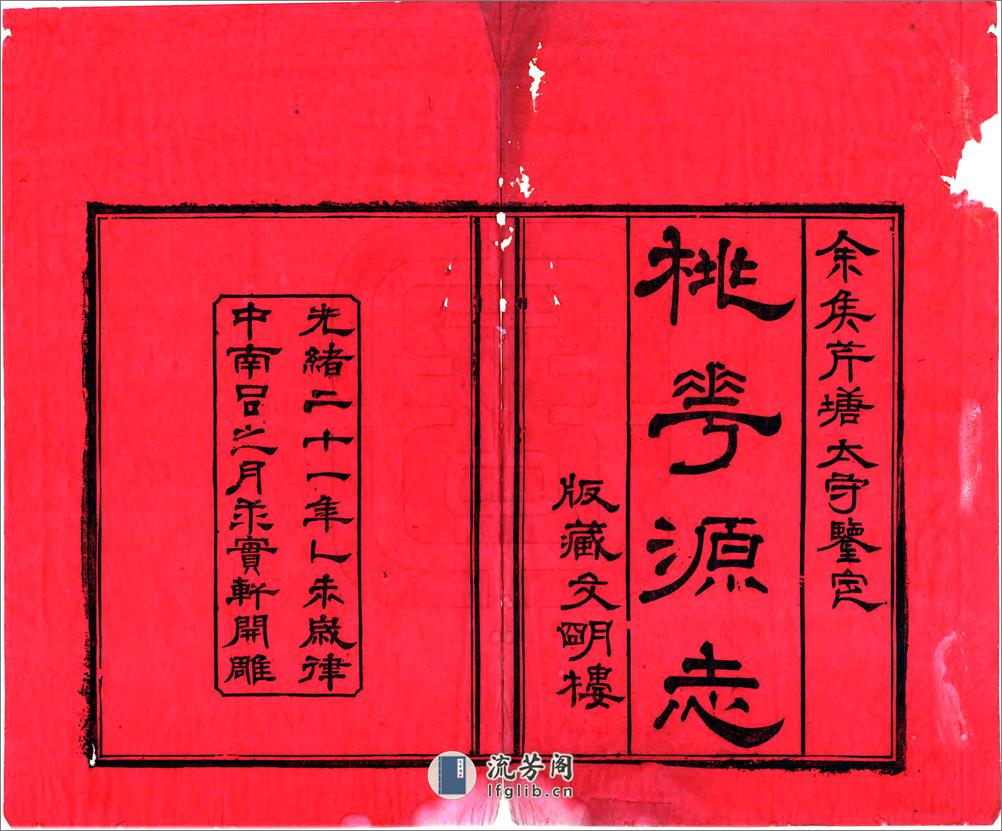 余侯芹塘太守鑒定
桃花源志
版藏文明樓
光緒二十一年乙未歲律
中南呂之月承實軒開雕
流芳阁
lfglib.cn